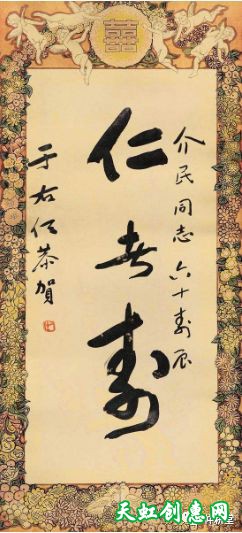 囍
介民同志六十壽辰
仁者壽
于右任恭賀
天虹创惠网